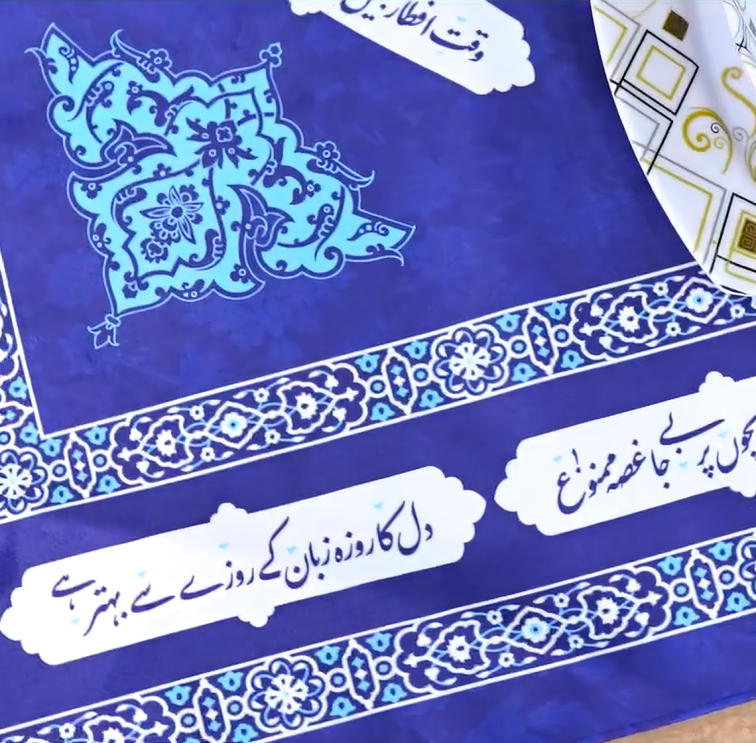 وقت افطار میں
بچوں پر بے جا غصہ ممنوع!
دل کا روزہ زبان کے روزے سے بہتر ہے